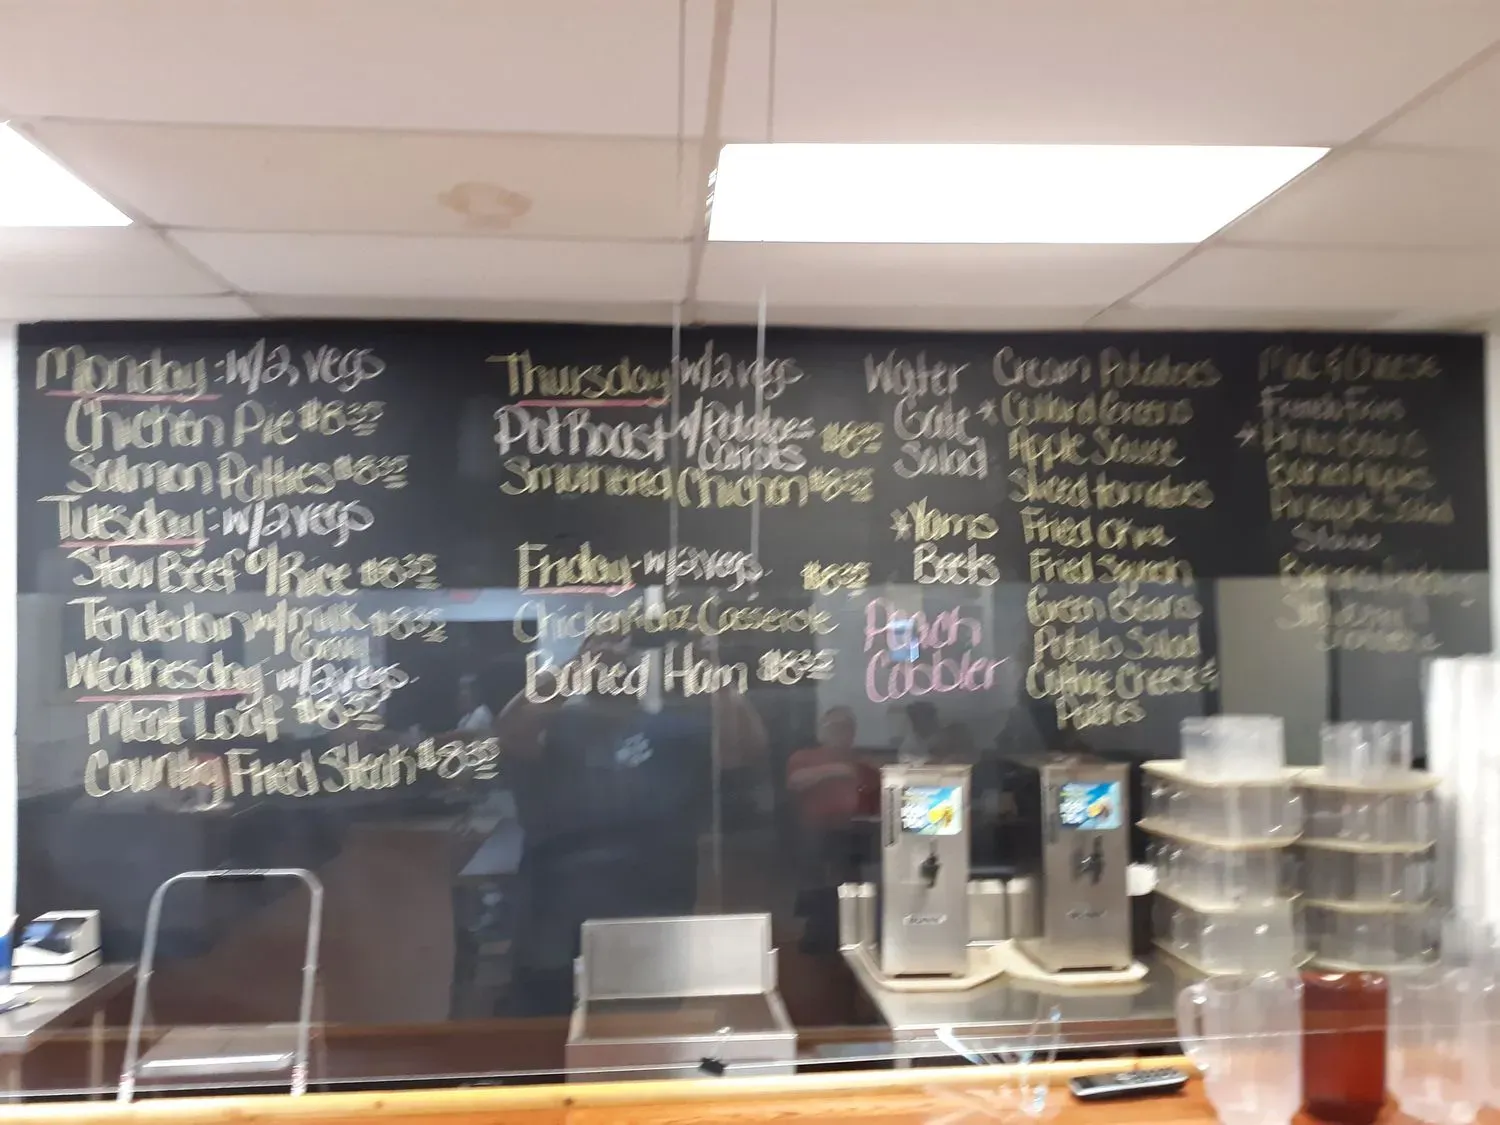 Monday: w/2 vegs
Chicken Pie $8.35
Salmon Patties $8.35
Tuesday: w/2 vegs
Stew Beef o/Rice $8.35
Tenderloin w/milk Gravy $8.35
Wednesday: w/2 vegs.
Meat Loaf $8.35
Country Fried Steak $8.35
Thursday w/2 vegs.
Pot Roast w/Potatoes Carrots $8.35
Smothered Chicken $8.35
Friday w/2 vegs. $8.35
Casserole
Baked Ham $8.35
Water
Gate
Salad
*Yams
Beets
Peach
Cobbler
Cream Potatoes
*Collard Greens
Apple Sauce
Sliced tomatoes
Fried Okra
Fried Squash
Green Beans
Potato Salad
Cottage Cheese &
Mac & Cheese
French Fries
*Pinto Beans
Baked Apples
Pineapple Salad
Slaw